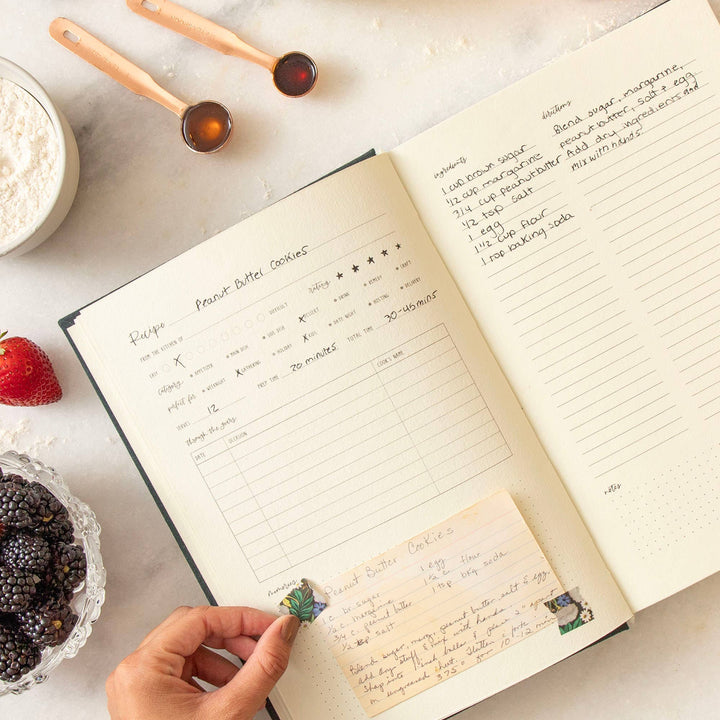 Recipe Peanut Butter Cookies
FROM THE KITCHEN OF
rating ★ ★ ★ ★ ★
EASY X DIFFICULT
category • APPETIZER • MAIN DISH • SIDE DISH X DESSERT • DRINK • REMEDY • CRAFT
perfect for • WEEKNIGHT X GATHERING • HOLIDAY X KIDS • DATE NIGHT • HOSTING • DELIVERY
SERVES 12 PREP TIME 20 minutes TOTAL TIME 30-45 mins
through the years
DATE OCCASION COOK'S NAME
memories
Peanut Butter Cookies
1 c. br. sugar
1/2 c. margarine
3/4 c. peanut butter
1/2 tsp salt
1 egg
1 1/2 c flour
1 tsp bkg soda
Blend sugar, marg, peanut butter, salt & egg.
Add dry stuff & mix with hands.
Shap into 1 inch balls & place 2" apart
on ungreased sheet. Flatten
375° for 10-12 min
ingredients
1 cup brown sugar
1/2 cup margarine
3/4 cup peanut butter
1/2 tsp salt
1 egg
1 1/2 cup flour
1 tsp baking soda
directions
Blend sugar, margarine,
peanut butter, salt & egg
Add dry ingredients and
mix with hands
notes